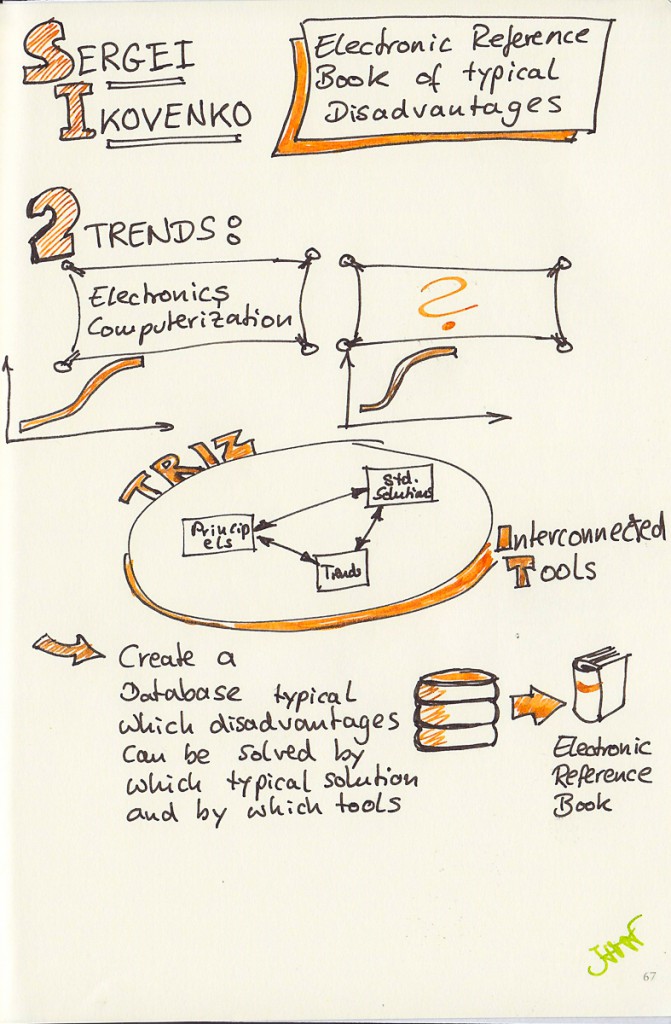 SERGEI
IKOVENKO
Electronic Reference
Book of typical
Disadvantages
2 TRENDS:
Electronics
Computerization
?
TRIZ
Std.
Solutions
Princip
els
Trends
Interconnected
Tools
Create a
Database typical
which disadvantages
can be solved by
which typical solution
and by which tools
Electronic
Reference
Book
67